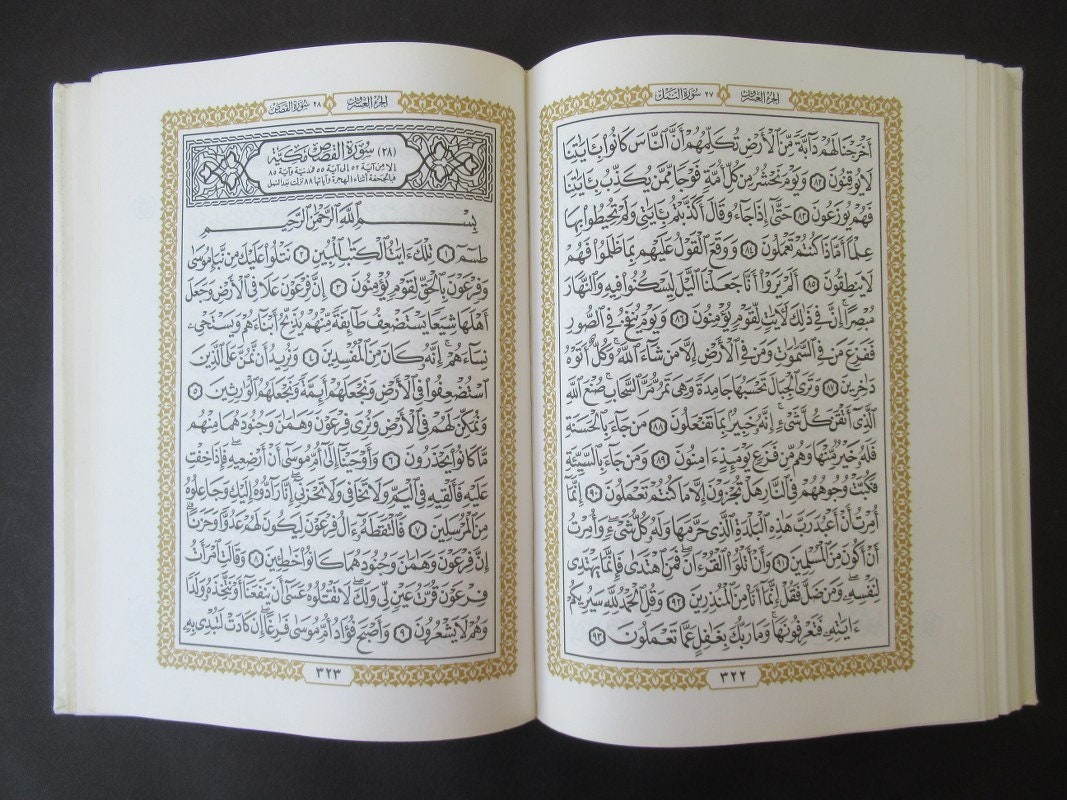 الجزء العشرون
٢٧ سورة النمل
أَخْرَجْنَا لَهُمْ دَابَّةً مِّنَ الْأَرْضِ تُكَلِّمُهُمْ أَنَّ النَّاسَ كَانُوا بِـَٔايَٰتِنَا
لَا يُوقِنُونَ ٨٢ وَيَوْمَ نَحْشُرُ مِن كُلِّ أُمَّةٍ فَوْجًا مِّمَّن يُكَذِّبُ بِـَٔايَٰتِنَا
فَهُمْ يُوزَعُونَ ٨٣ حَتَّىٰ إِذَا جَاءُو قَالَ أَكَذَّبْتُم بِـَٔايَٰتِي وَلَمْ تُحِيطُوا بِهَا
عِلْمًا أَمَّاذَا كُنتُمْ تَعْمَلُونَ ٨٤ وَوَقَعَ الْقَوْلُ عَلَيْهِم بِمَا ظَلَمُوا فَهُمْ
لَا يَنطِقُونَ ٨٥ أَلَمْ يَرَوْا أَنَّا جَعَلْنَا الَّيْلَ لِيَسْكُنُوا فِيهِ وَالنَّهَارَ
مُبْصِرًا إِنَّ فِي ذَٰلِكَ لَـَٔايَٰتٍ لِّقَوْمٍ يُؤْمِنُونَ ٨٦ وَيَوْمَ يُنفَخُ فِي الصُّورِ
فَفَزِعَ مَن فِي السَّمَٰوَٰتِ وَمَن فِي الْأَرْضِ إِلَّا مَن شَاءَ اللَّهُ وَكُلٌّ أَتَوْهُ
دَٰخِرِينَ ٨٧ وَتَرَى الْجِبَالَ تَحْسَبُهَا جَامِدَةً وَهِيَ تَمُرُّ مَرَّ السَّحَابِ صُنْعَ اللَّهِ
الَّذِي أَتْقَنَ كُلَّ شَيْءٍ إِنَّهُ خَبِيرٌ بِمَا تَفْعَلُونَ ٨٨ مَن جَاءَ بِالْحَسَنَةِ
فَلَهُ خَيْرٌ مِّنْهَا وَهُم مِّن فَزَعٍ يَوْمَئِذٍ ءَامِنُونَ ٨٩ وَمَن جَاءَ بِالسَّيِّئَةِ
فَكُبَّتْ وُجُوهُهُمْ فِي النَّارِ هَلْ تُجْزَوْنَ إِلَّا مَا كُنتُمْ تَعْمَلُونَ ٩٠ إِنَّمَا
أُمِرْتُ أَنْ أَعْبُدَ رَبَّ هَٰذِهِ الْبَلْدَةِ الَّذِي حَرَّمَهَا وَلَهُ كُلُّ شَيْءٍ وَأُمِرْتُ
أَنْ أَكُونَ مِنَ الْمُسْلِمِينَ ٩١ وَأَنْ أَتْلُوَا الْقُرْءَانَ فَمَنِ اهْتَدَىٰ فَإِنَّمَا يَهْتَدِي
لِنَفْسِهِ وَمَن ضَلَّ فَقُلْ إِنَّمَا أَنَا مِنَ الْمُنذِرِينَ ٩٢ وَقُلِ الْحَمْدُ لِلَّهِ سَيُرِيكُمْ
ءَايَٰتِهِ فَتَعْرِفُونَهَا وَمَا رَبُّكَ بِغَٰفِلٍ عَمَّا تَعْمَلُونَ ٩٣
٣٢٢
الجزء العشرون
٢٨ سورة القصص
(٢٨) سورة القصص مكية
إلا من آية ٥٢ إلى آية ٥٥ فمدنية وآية ٨٥
فبالجحفة أثناء الهجرة وآياتها ٨٨ نزلت بعد النمل
بِسْمِ اللَّهِ الرَّحْمَٰنِ الرَّحِيمِ
طسٓمٓ ١ تِلْكَ ءَايَٰتُ الْكِتَٰبِ الْمُبِينِ ٢ نَتْلُوا عَلَيْكَ مِن نَّبَإِ مُوسَىٰ
وَفِرْعَوْنَ بِالْحَقِّ لِقَوْمٍ يُؤْمِنُونَ ٣ إِنَّ فِرْعَوْنَ عَلَا فِي الْأَرْضِ وَجَعَلَ
أَهْلَهَا شِيَعًا يَسْتَضْعِفُ طَائِفَةً مِّنْهُمْ يُذَبِّحُ أَبْنَاءَهُمْ وَيَسْتَحْيِي
نِسَاءَهُمْ إِنَّهُ كَانَ مِنَ الْمُفْسِدِينَ ٤ وَنُرِيدُ أَن نَّمُنَّ عَلَى الَّذِينَ
اسْتُضْعِفُوا فِي الْأَرْضِ وَنَجْعَلَهُمْ أَئِمَّةً وَنَجْعَلَهُمُ الْوَٰرِثِينَ ٥
وَنُمَكِّنَ لَهُمْ فِي الْأَرْضِ وَنُرِيَ فِرْعَوْنَ وَهَٰمَٰنَ وَجُنُودَهُمَا مِنْهُم
مَّا كَانُوا يَحْذَرُونَ ٦ وَأَوْحَيْنَا إِلَىٰ أُمِّ مُوسَىٰ أَنْ أَرْضِعِيهِ فَإِذَا خِفْتِ
عَلَيْهِ فَأَلْقِيهِ فِي الْيَمِّ وَلَا تَخَافِي وَلَا تَحْزَنِي إِنَّا رَادُّوهُ إِلَيْكِ وَجَاعِلُوهُ
مِنَ الْمُرْسَلِينَ ٧ فَالْتَقَطَهُ ءَالُ فِرْعَوْنَ لِيَكُونَ لَهُمْ عَدُوًّا وَحَزَنًا
إِنَّ فِرْعَوْنَ وَهَٰمَٰنَ وَجُنُودَهُمَا كَانُوا خَٰطِـِٔينَ ٨ وَقَالَتِ امْرَأَتُ
فِرْعَوْنَ قُرَّتُ عَيْنٍ لِّي وَلَكَ لَا تَقْتُلُوهُ عَسَىٰ أَن يَنفَعَنَا أَوْ نَتَّخِذَهُ وَلَدًا
وَهُمْ لَا يَشْعُرُونَ ٩ وَأَصْبَحَ فُؤَادُ أُمِّ مُوسَىٰ فَٰرِغًا إِن كَادَتْ لَتُبْدِي بِهِ
٣٢٣